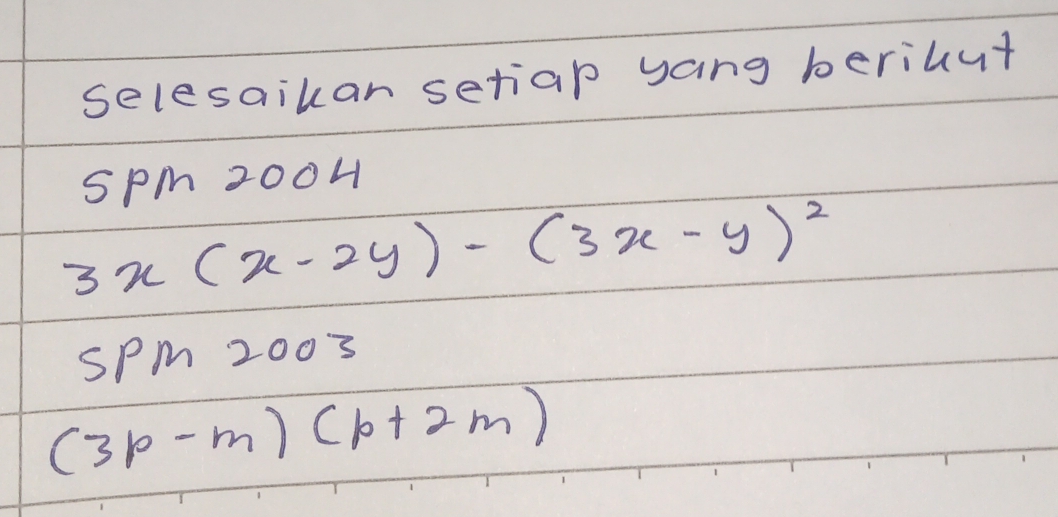 selesaikan setiap yang berikut
SPM 2004
3x (x - 2y) - (3x - y)²
SPM 2003
(3p - m) (p + 2m)